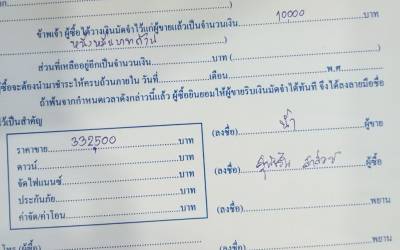 ข้าพเจ้า ผู้ซื้อ ได้วางเงินมัดจำไว้แก่ผู้ขายแล้วเป็นจำนวนเงิน 10000 บาท
( หนึ่งหมื่นบาทถ้วน )
ส่วนที่เหลืออยู่อีกเป็นจำนวนเงิน บาท ( )
ผู้ซื้อจะต้องนำมาชำระให้ครบถ้วนภายใน วันที่ เดือน พ.ศ.
ถ้าพ้นจากกำหนดเวลาดังกล่าวนี้แล้ว ผู้ซื้อยินยอมให้ผู้ขายริบเงินมัดจำได้ทันที จึงได้ลงลายมือชื่อ
ไว้เป็นสำคัญ
ราคาขาย 332,500 บาท
ดาวน์ บาท
จัดไฟแนนซ์ บาท
ประกันภัย บาท
กำจัด/ค่าโอน บาท
(ลงชื่อ) น้ำ ผู้ขาย
(ลงชื่อ) ผู้ซื้อ
(ลงชื่อ) พยาน
พยาน